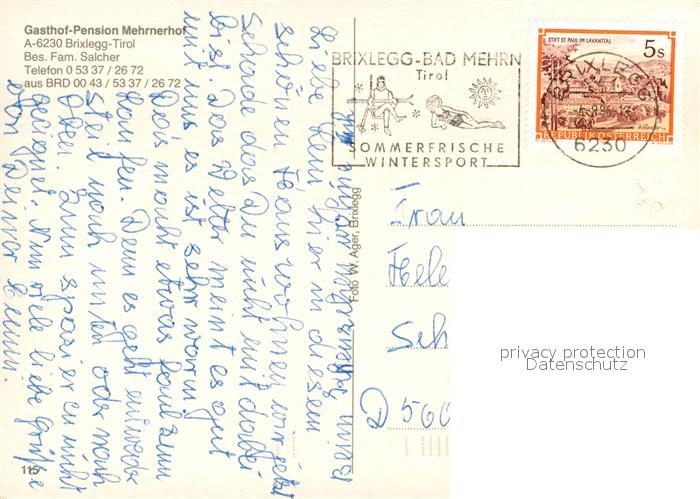 Gasthof-Pension Mehrnerhof
A-6230 Brixlegg-Tirol
Bes. Fam. Salcher
Telefon 0 53 37 / 26 72
aus BRD 00 43 / 53 37 / 26 72
BRIXLEGG-BAD MEHRN
Tirol
SOMMERFRISCHE
WINTERSPORT
STIFT ST. PAUL IM LAVANTTAL
5 S
REPUBLIK ÖSTERREICH
BRIXLEGG
6230
Liebe Leni hier in diesem
schönen Haus wohnen wir jetzt
Schade das Du nicht mit dabei
bist. Das Wetter meint es gut
mit uns es ist sehr warm.
Das macht etwas faul zum
laufen. Denn es geht entweder
steil nach unten oder nach
Oben. Zum spazieren nicht
geeignet. Nun viele liebe Grüße
von Deiner
Foto W. Ager, Brixlegg
Frau
Hele
Sch
D 560
115
privacy protection
Datenschutz